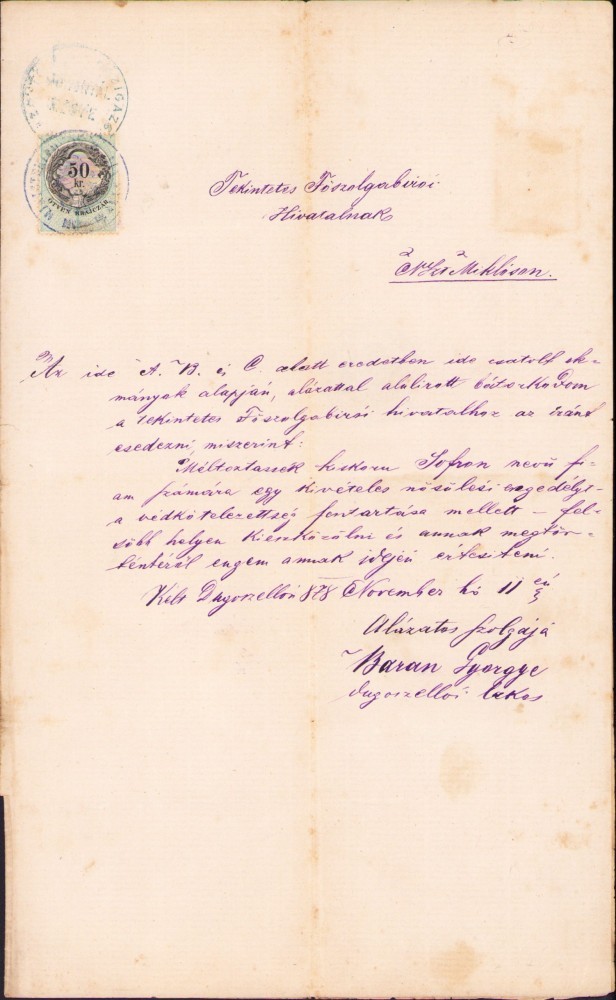 50
kr.
ÖTVEN KRAJCZÁR
Tekintetes Főszolgabirói
Hivatalnak
N. Sz. Miklóson.
Az ide A. B. és C. alatt eredetben ide csatolt ok-
mányok alapján, alázattal alulirott bátorkodom
a tekintetes Főszolgabirói hivatalhoz az iránt
esedezni, miszerint:
Méltoztassék kiskoru Sofron nevű fi-
am számára egy kivételes nősülési engedélyt
a védkötelezettség fentartása mellett – fel-
sőbb helyen kieszközölni és annak megtör-
téntéről engem annak idején értesiteni.
Kelt Dugoszellón 878 November hó 11 én
Alázatos szolgája
Baran Gyorgye
dugoszellói lakos